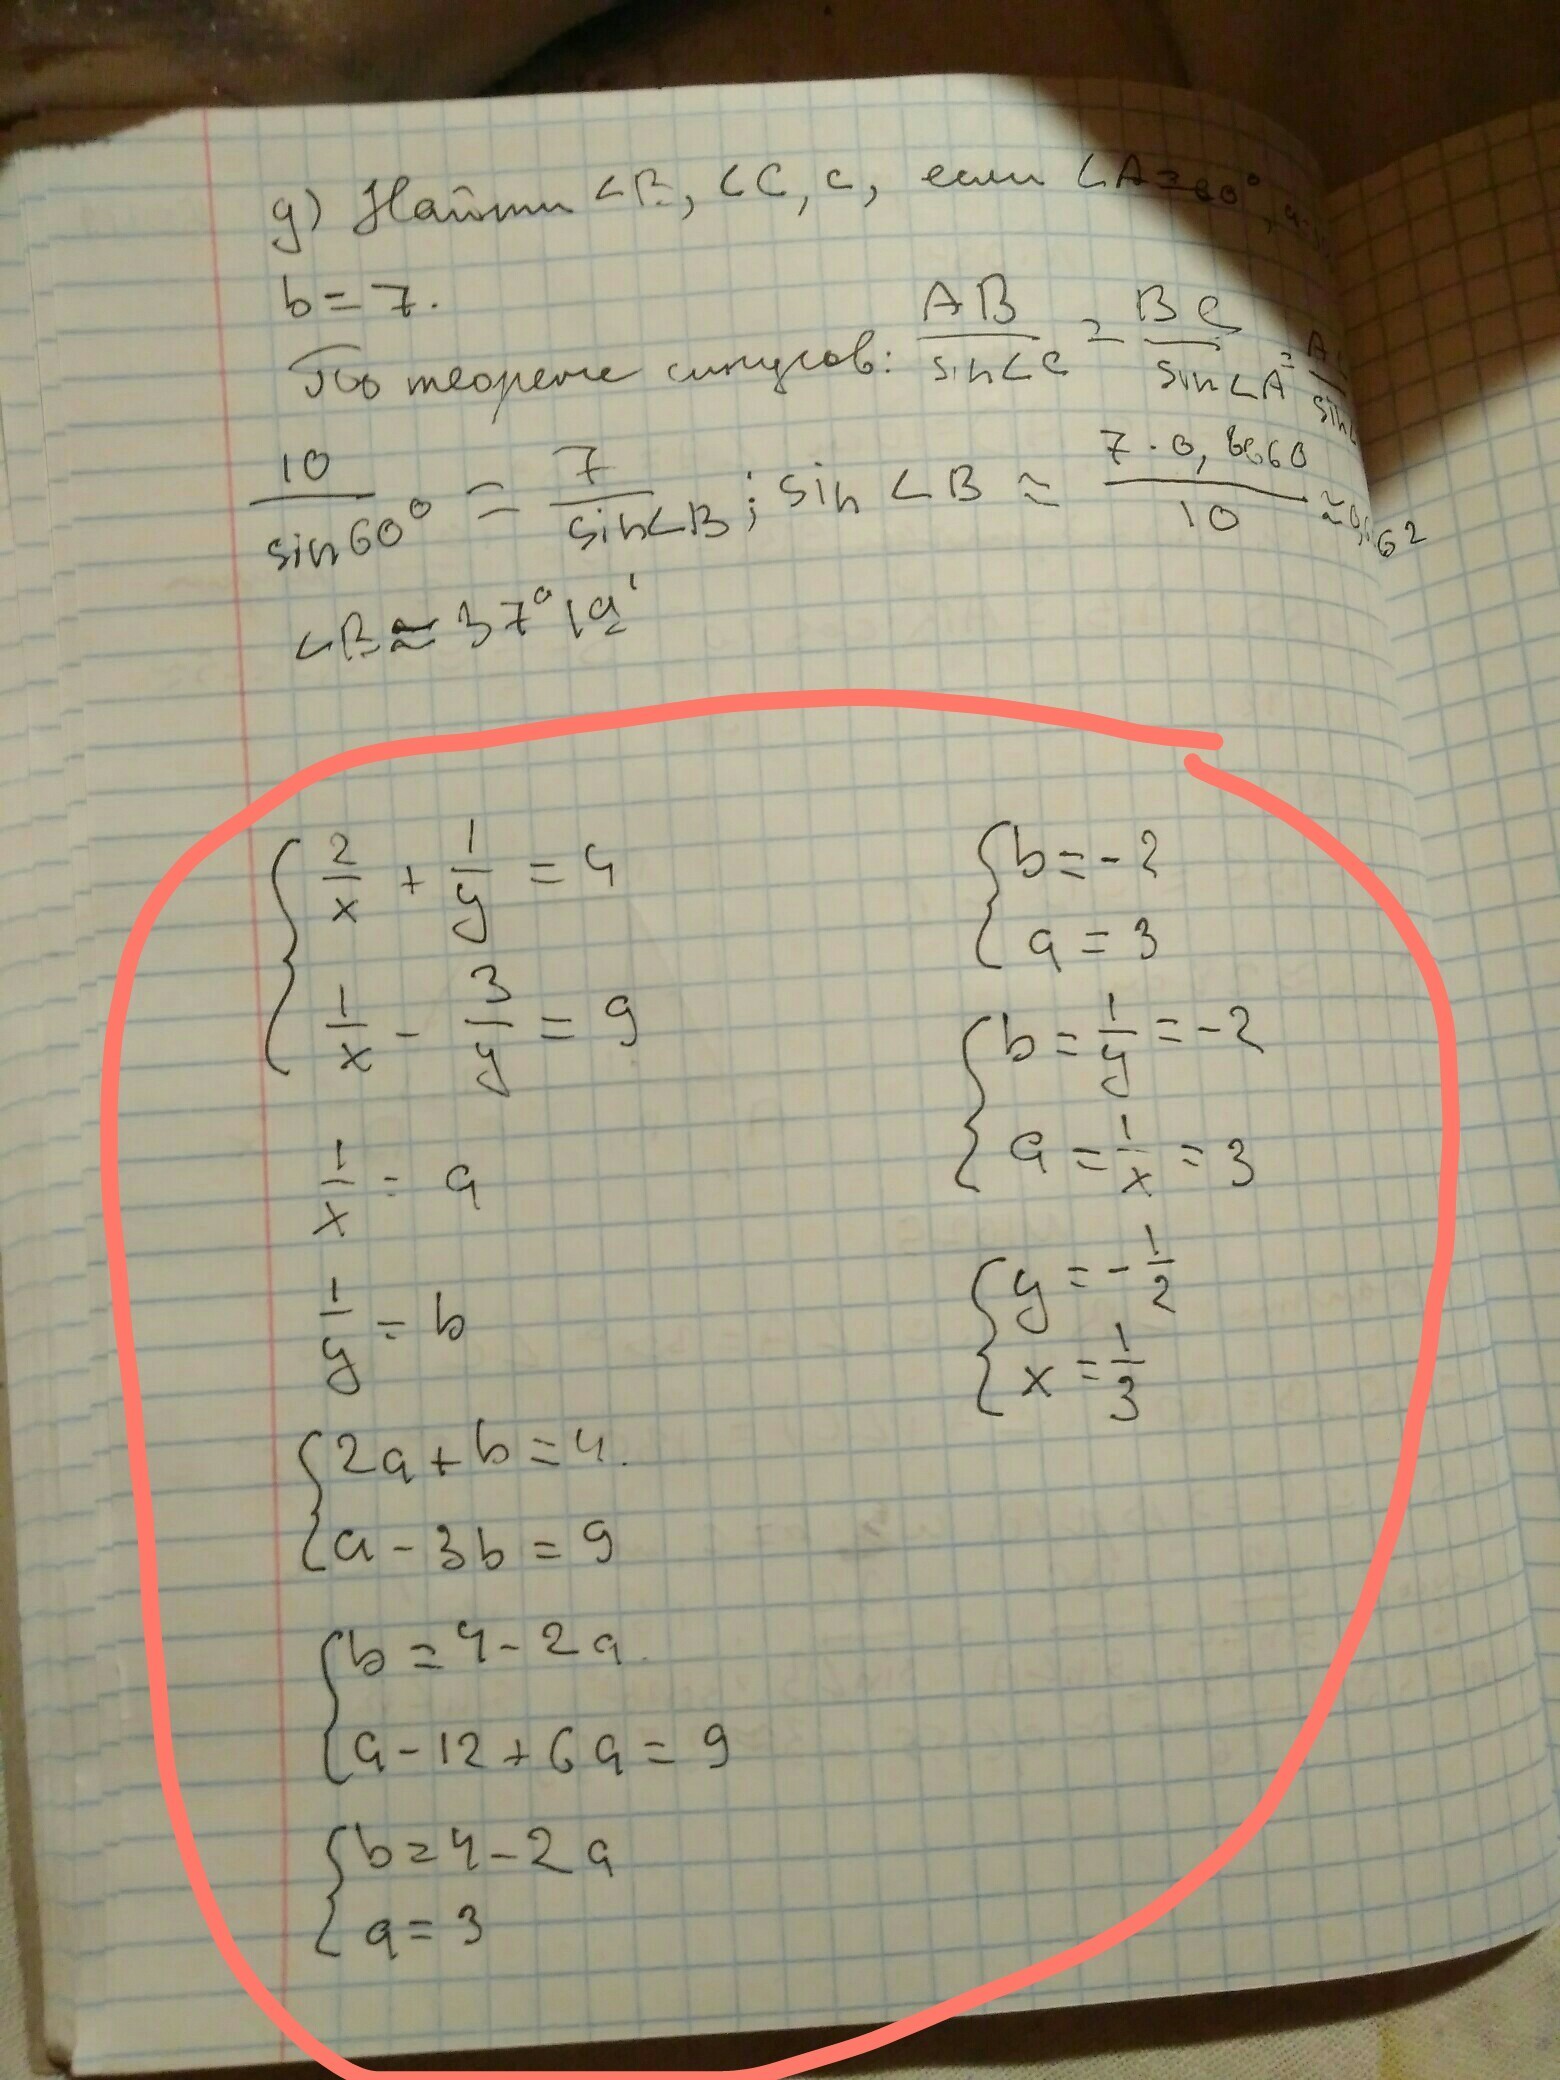 g) Найти ∠B, ∠C, c, если ∠A=60°,
b=7.
По теореме синусов: AB/sin∠C = BC/sin∠A =
10/sin60° = 7/sin∠B; sin∠B ≈ 7·0,8660/10 ≈
∠B ≈ 37°19'
{2/x + 1/y = 4
{1/x - 3/y = 9
1/x = a
1/y = b
{2a+b=4.
{a-3b=9
{b=4-2a.
{a-12+6a=9
{b=4-2a
{a=3
{b=-2
{a=3
{b=1/y=-2
{a=1/x=3
{y=-1/2
{x=1/3